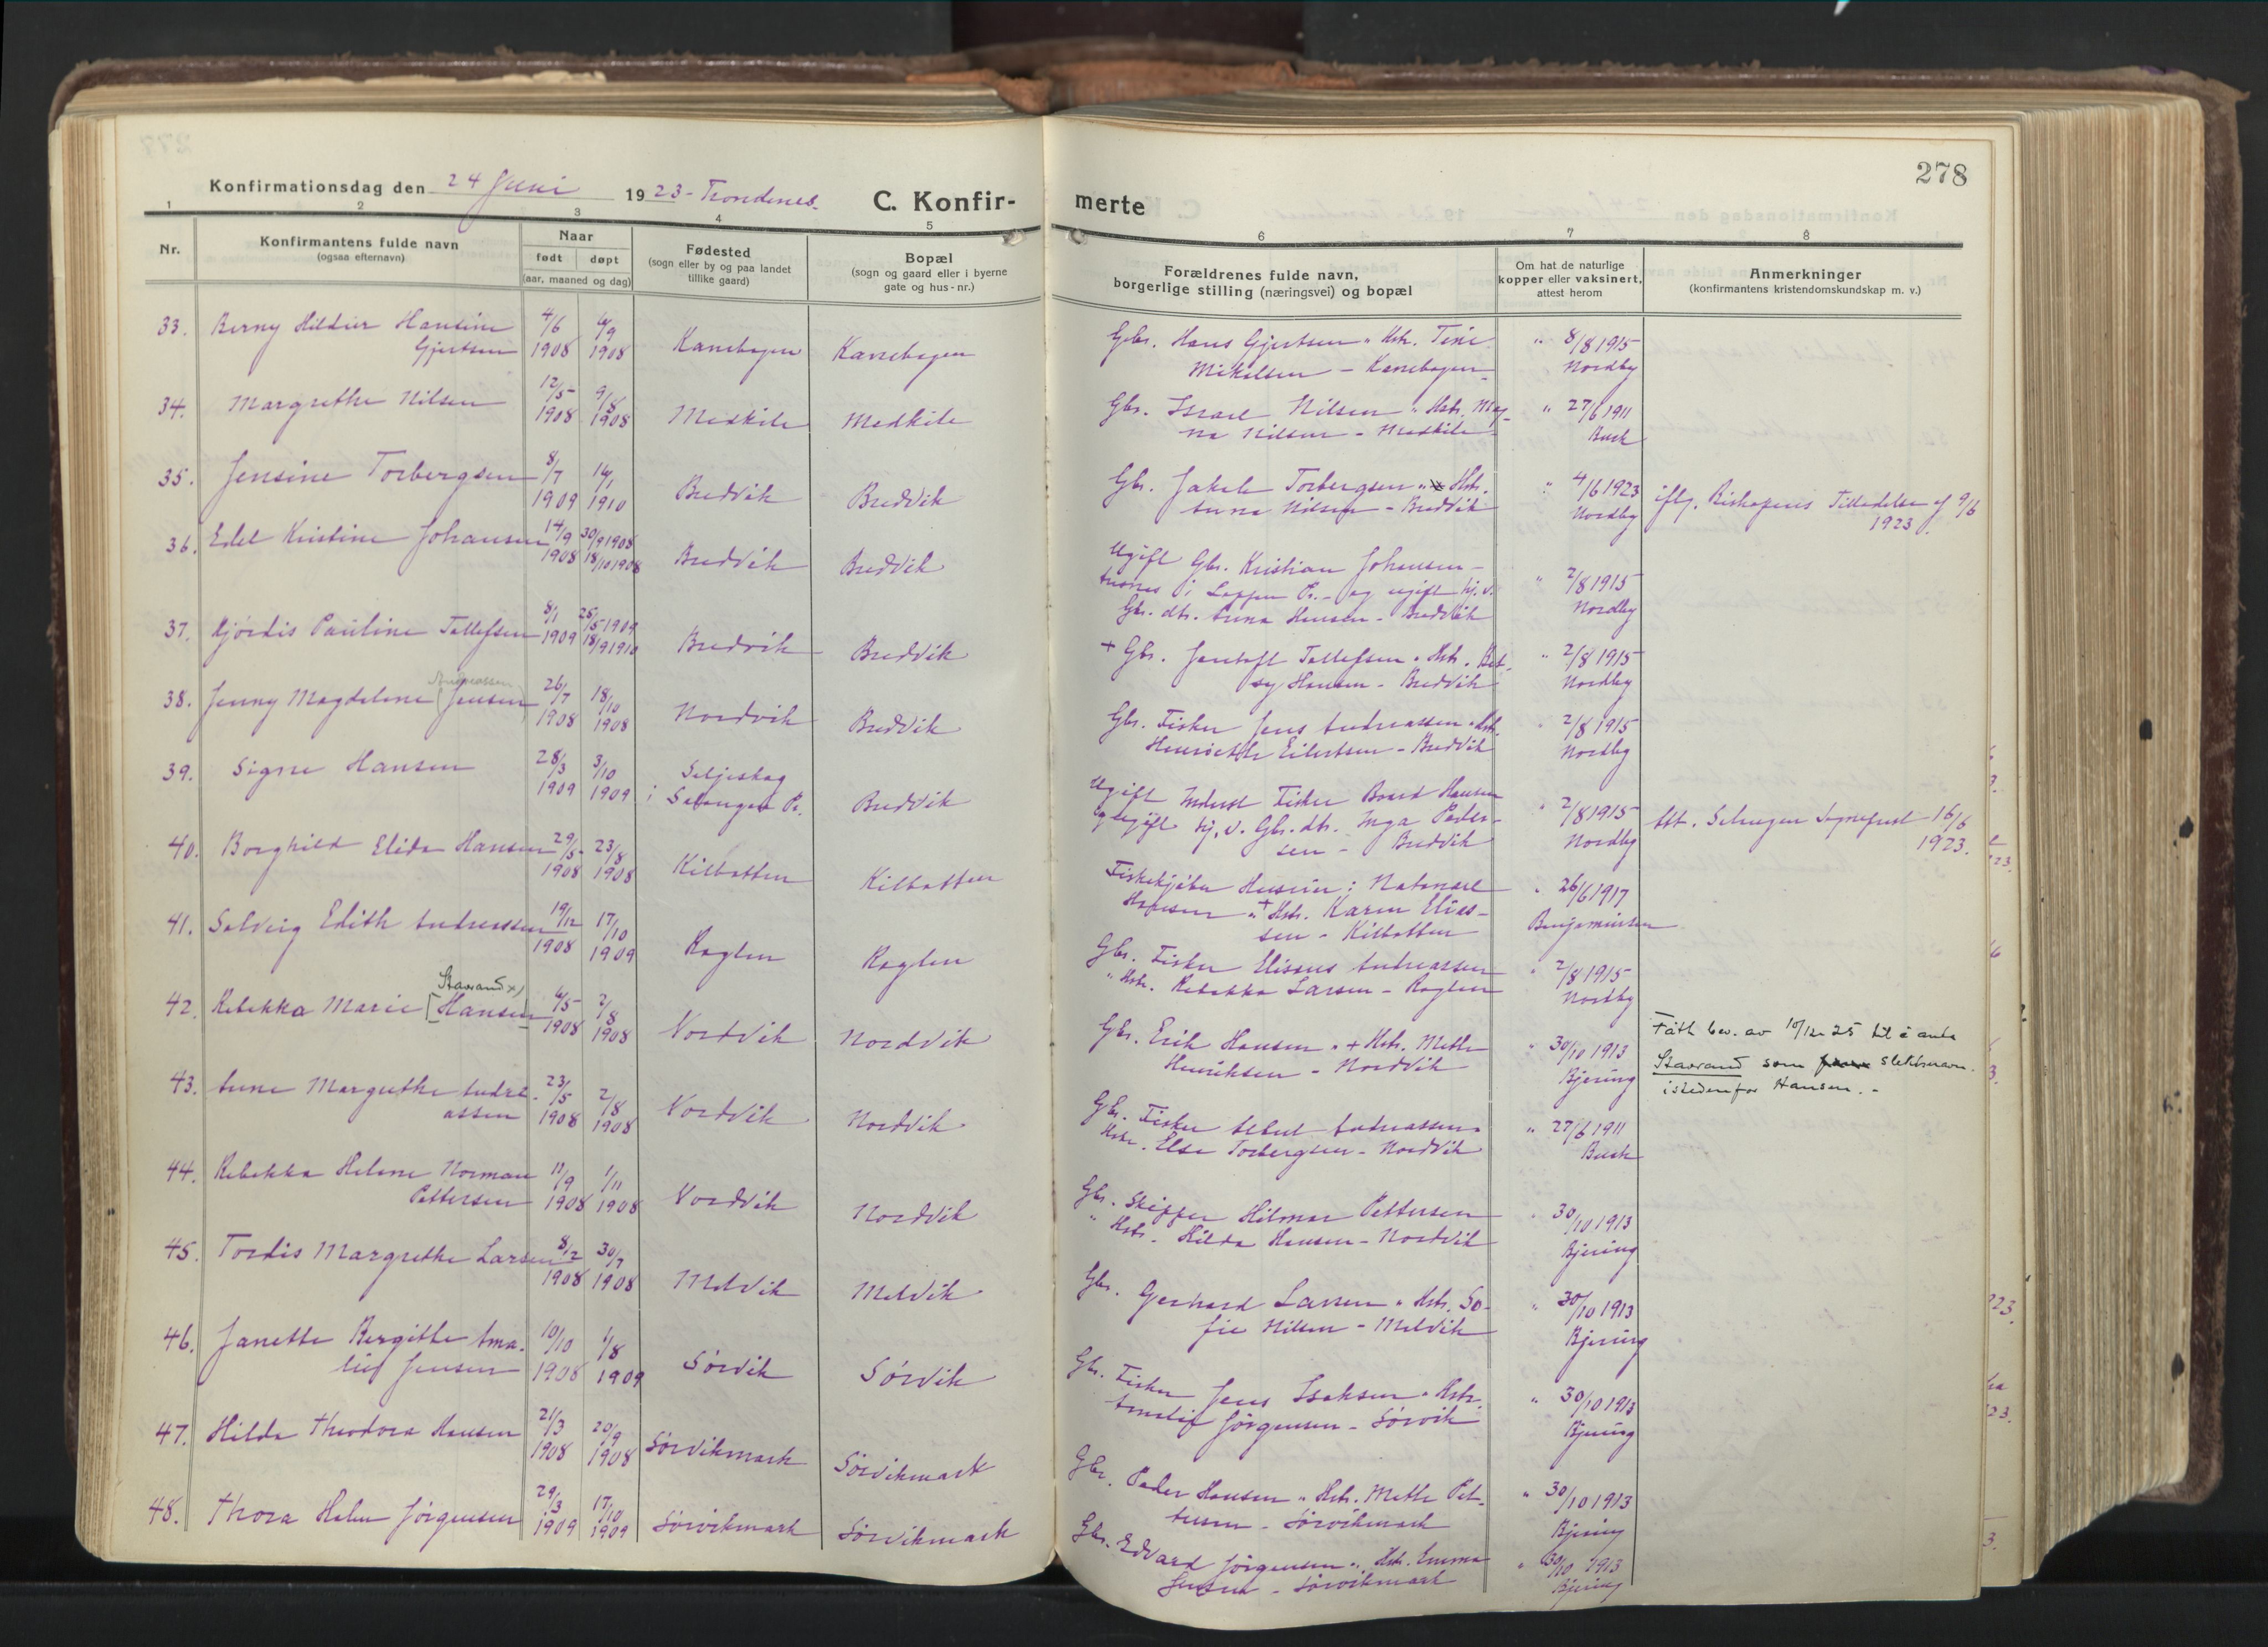 278
Konfirmationsdag den 24 Juni 1923 - Trondenes.
C. Konfir-merte
1 2 3 4 5 6 7 8
Nr.
Konfirmantens fulde navn
(ogsaa efternavn)
Naar
født døpt
(aar, maaned og dag)
Fødested
(sogn eller by og paa landet
tillike gaard)
Bopæl
(sogn og gaard eller i byerne
gate og hus-nr.)
Forældrenes fulde navn,
borgerlige stilling (næringsvei) og bopæl
Om hat de naturlige
kopper eller vaksinert,
attest herom
Anmerkninger
(konfirmantens kristendomskundskap m. v.)
33. Berny Hansine 4/6 6/9 Gbr. Hans Gjertsen " Hstr. Tine " 8/8 1915
Gjertsen 1908 1908 Kanebogen Kanebogen Mikalsen - Kanebogen Nordby
34. Margrethe Nilsen 12/5 9/8 Gbr. Israel Nilsen " Hstr. Mag- " 27/6 1911
1908 1908 Medkile Medkile na Nilsen - Medkile Busch
35. Jensine Torbergsen 8/7 16/1 Gbr. Jakob Torbergsen " Hstr. " 4/6 1923 iflg. Biskopens Tilladelse af 9/6
1909 1910 Bredvik Bredvik Anna Nilsen - Bredvik Nordby 1923.
36. Edel Kristine Johansen 14/9 30/9 1908 Ugift Gbr. Kristian Johansen -
1908 18/10 1908 Bredvik Bredvik i Loppen Pr. - og ugift hj. v. " 2/8 1915
Gbr. dtr. Anna Hansen - Bredvik Nordby
37. Hjørdis Pauline Tollefsen 8/1 25/5 1909 + Gbr. Tollefsen " Hstr. Bet- " 2/8 1915
1909 18/9 1910 Bredvik Bredvik sy Hansen - Bredvik Nordby
Andreassen
38. Jenny Magdalene (Jensen) 26/7 18/10 Gbr. Fisker Jens Andreassen " Hstr. " 2/8 1915
1908 1908 Nordvik Bredvik Henriette Eilertsen - Bredvik Nordby
39. Signe Hansen 28/3 3/10 Seljeskog Ugift Fisker Hansen " 2/8 1915
1909 1909 i Salangen Pr. Bredvik og ugift hj. v. Gbr. dtr. Inga Peder- Nordby Att. Salangen Sogneprest 16/6
sen - Bredvik 1923.
40. Borghild Elida Hansen 29/5 23/8 Fiskekjøber Natanael " 26/6 1917
1908 1908 Kilbotten Kilbotten Hansen " + Hstr. Karen Elias- Benjaminsen
sen - Kilbotten
41. Solveig Edith Andreassen 19/12 17/10 Gbr. Fisker Elisæus Andreassen " 2/8 1915
1908 1909 Røglen Røglen " Hstr. Rebekka Larsen - Røglen Nordby
Stavrand x)
42. Rebekka Marie [Hansen] 6/5 2/8 Gbr. Erik Hansen " + Hstr. Mette " 30/10 1913 Fått bev. av 10/12 25 til å anta
1908 1908 Nordvik Nordvik Henriksen - Nordvik Bjering Stavrand som slektsnavn
istedenfor Hansen. -
43. Anne Margrethe Andre- 23/5 2/8 Gbr. Fisker Andreassen " 27/6 1911
assen 1908 1908 Nordvik Nordvik Hstr. Else Torbergsen - Nordvik Busch
44. Rebekka Helene Norman 11/9 1/11 Gbr. Skipper Hilmar Pettersen " 30/10 1913
Pettersen 1908 1908 Nordvik Nordvik " Hstr. Hilda Hansen - Nordvik Bjering
45. Tordis Margrethe Larsen 8/12 30/7 Gbr. Gerhard Larsen " Hstr. So- " 30/10 1913
1908 1908 Melvik Melvik fie Nilsen - Melvik Bjering
46. Janette Bergitte Ama- 10/10 1/8 Gbr. Fisker Jens Isaksen " Hstr. " 30/10 1913
lie Jensen 1908 1909 Sørvik Sørvik Amalie Jørgensen - Sørvik Bjering
47. Hilda Theodora Hansen 21/3 20/9 Gbr. Peder Hansen " Hstr. Mette Pet- " 30/10 1913
1908 1908 Sørvikmark Sørvikmark tersen - Sørvikmark Bjering
48. Thora Jørgensen 29/3 17/10 Gbr. Edvard Jørgensen " Hstr. Emma " 30/10 1913
1909 1909 Sørvikmark Sørvikmark Jensen - Sørvikmark Bjering